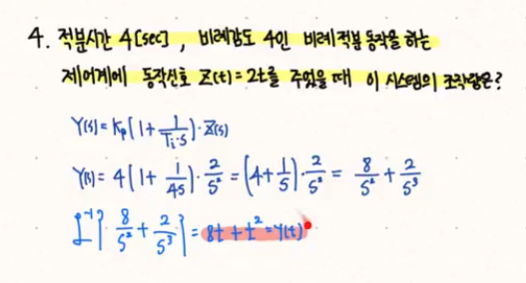 4. 적분시간 4[sec], 비례감도 4인 비례적분 동작을 하는
제어계에 동작신호 Z(t)=2t를 주었을 때 이 시스템의 조작량은?
Y(s)=Kp(1+1/(Ti·s))·Z(s)
Y(s)=4(1+1/(4S))·2/S²=(4+1/S)·2/S²=8/S²+2/S³
L⁻¹{8/S²+2/S³}=8t+t²=Y(t)